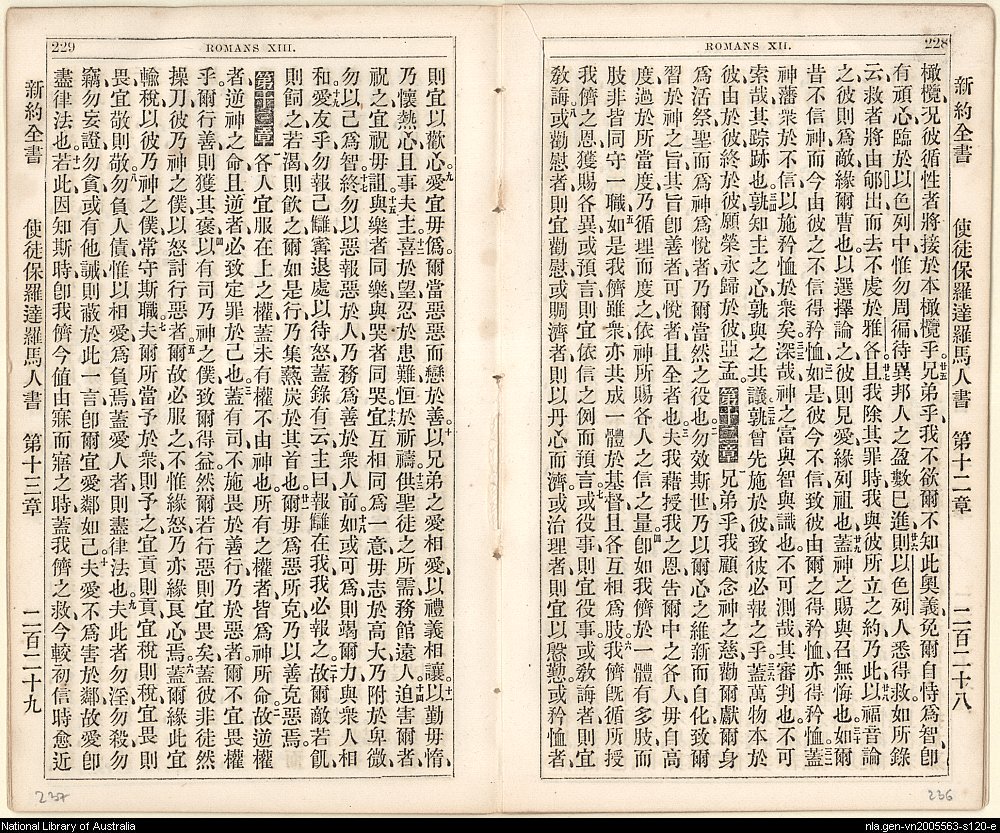 228
ROMANS XII.
新約全書 使徒保羅達羅馬人書 第十二章 二百二十八
橄欖況彼循性者將接於本橄欖乎廿五兄弟乎我不欲爾不知此奧義免爾自恃爲智卽
有頑心臨於以色列中惟勿周徧待異邦人之盈數已進廿六則以色列人悉得救如所錄
云救者將由郇出而去不處於雅各廿七且我除其罪時我與彼所立之約乃此廿八以福音論
之彼則爲敵緣爾曹也以選擇論之彼則見愛緣列祖也廿九蓋神之賜與召無悔也三十如爾
昔不信神而今由彼之不信得矜恤三一如是彼今不信致彼由爾之得矜恤亦得矜恤三二蓋
神藩衆於不信以施矜恤於衆矣三三深哉神之富與智與識也不可測哉其審判也不可
索哉其踪跡也三四孰知主之心孰與之共議三五孰曾先施於彼致彼必報之乎三六蓋萬物本於
彼由於彼終於彼願榮永歸於彼亞孟第十二章兄弟乎我顧念神之慈勸爾獻爾身
爲活祭聖而爲神爲悅者乃爾當然之役也二勿效斯世乃以爾心之維新而自化致爾
習於神之旨其旨卽善者可悅者且全者也三夫我藉授我之恩告爾中之各人毋自高
度過於所當度乃循理而度之依神所賜各人之信之量四卽如我儕於一體有多肢而
肢非皆同守一職五如是我儕雖衆亦共成一體於基督且各互相爲肢六我儕旣循所授
我儕之恩獲賜各異或預言則宜依信之例而預言七或役事則宜役事或敎誨者則宜
敎誨八或勸慰者則宜勸慰或賙濟者則以丹心而濟或治理者則宜以慇懃或矜恤者
236
229
ROMANS XIII.
則宜以歡心九愛宜毋僞爾當惡惡而戀於善十以兄弟之愛相愛以禮義相讓十一以勤毋惰
乃懷熱心且事夫主十二喜於望忍於患難恒於祈禱十三供聖徒之所需務館遠人十四迫害爾者
祝之宜祝毋詛十五與樂者同樂與哭者同哭十六宜互相同爲一意毋志於高大乃附於卑微
勿以己爲智十七終勿以惡報惡於人乃務爲善於衆人前十八如或可爲則竭爾力與衆人相
和十九愛友乎勿報己讎寗退處以待怒蓋錄有云主曰報讎在我我必報之二十故爾敵若飢
則飼之若渴則飲之爾如是行乃集爇炭於其首也廿一爾毋爲惡所克乃以善克惡焉
第十三章各人宜服在上之權蓋未有權不由神也所有之權者皆爲神所命二故逆權
者逆神之命且逆者必致定罪於己也三蓋有司不施畏於善行乃於惡者爾不宜畏權
乎爾行善則獲其褒四以有司乃神之僕致爾得益然爾若行惡則宜畏矣蓋彼非徒然
操刀彼乃神之僕以怒討行惡者五爾故必服之不惟緣怒乃亦緣良心焉六蓋爾緣此宜
輸稅以彼乃神之僕常守斯職七夫爾所當予於衆則予之宜貢則貢宜稅則稅宜畏則
畏宜敬則敬八勿負人債惟以相愛爲負焉蓋愛人者則盡律法也九夫此者勿淫勿殺勿
竊勿妄證勿貪或有他誡則蔽於此一言卽爾宜愛鄰如己十夫愛不爲害於鄰故愛卽
盡律法也十一若此因知斯時卽我儕今値由寐而寤之時蓋我儕之救今較初信時愈近
新約全書 使徒保羅達羅馬人書 第十三章 二百二十九
237
National Library of Australia
nla.gen-vn2005563-s120-e